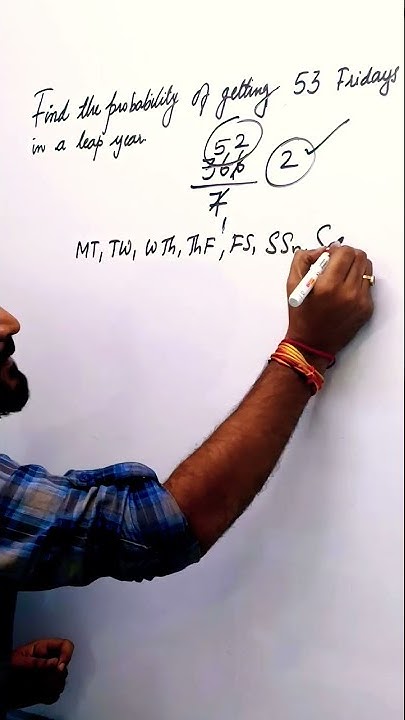 Find the probability of getting 53 Fridays
in a leap year
52
366
2
7
1
MT, TW, WTh, ThF, FS, SSn,